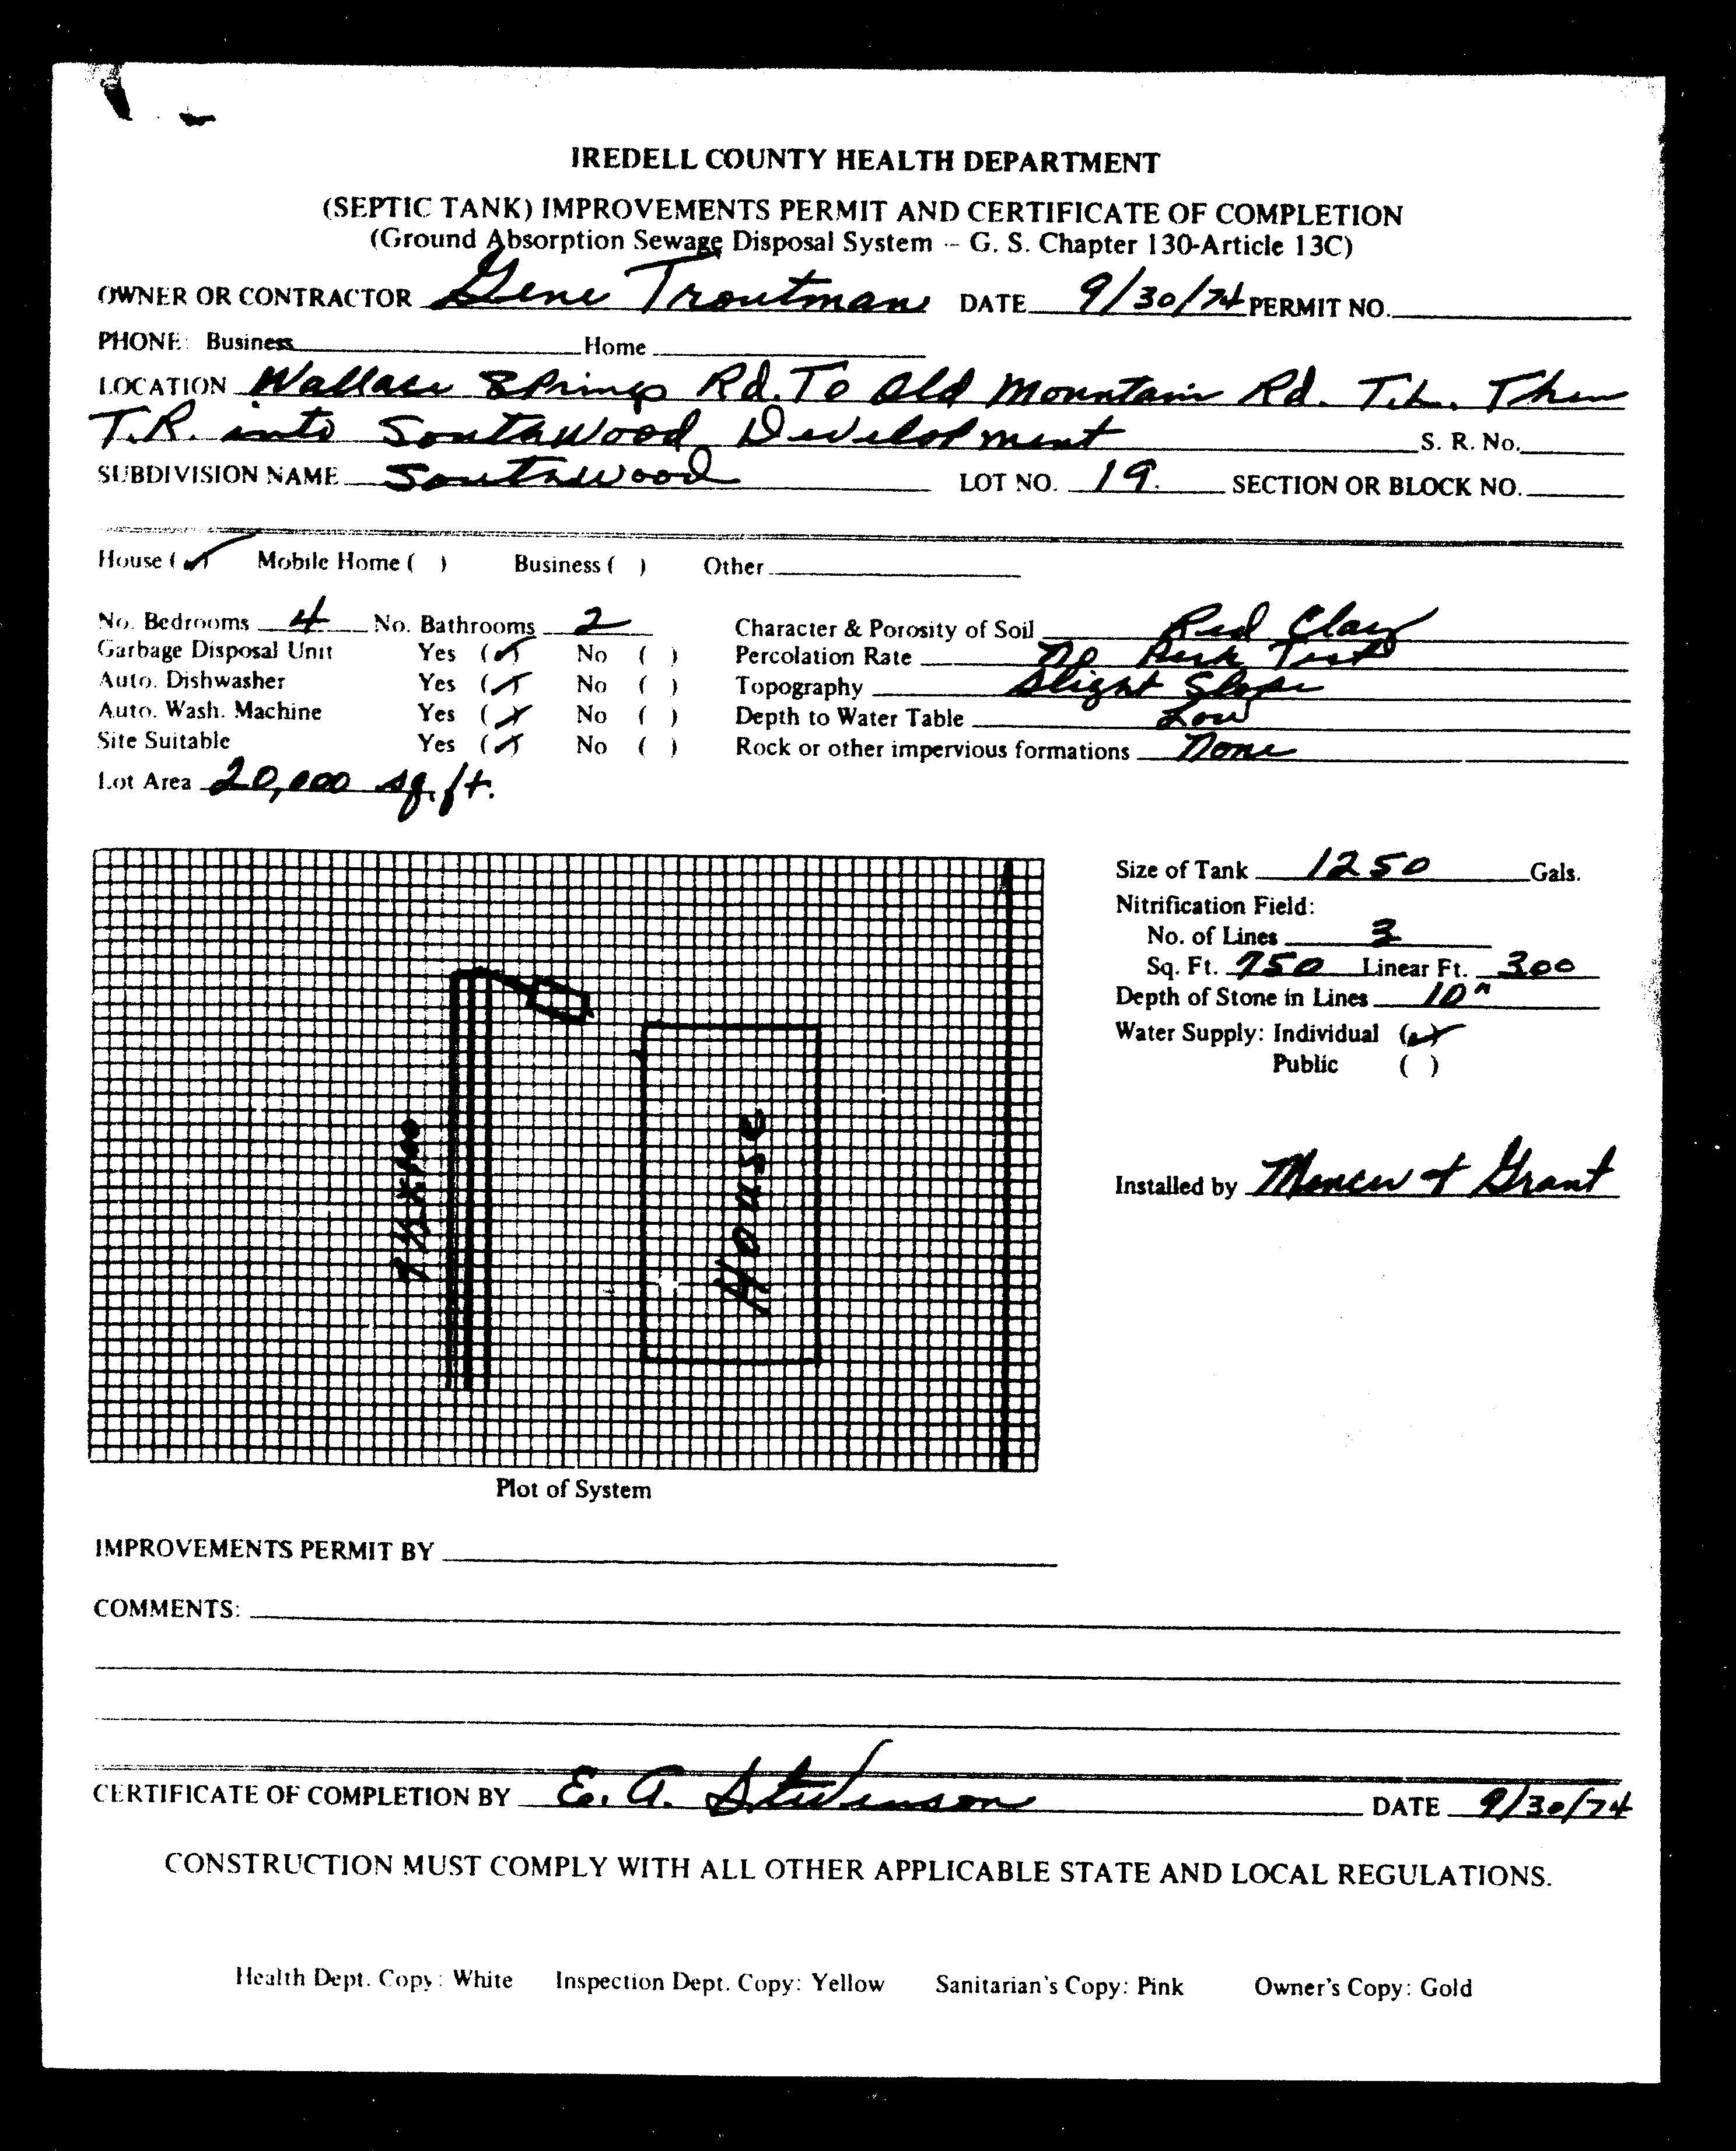 IREDELL COUNTY HEALTH DEPARTMENT
(SEPTIC TANK) IMPROVEMENTS PERMIT AND CERTIFICATE OF COMPLETION
(Ground Absorption Sewage Disposal System -- G. S. Chapter 130-Article 13C)
OWNER OR CONTRACTOR Gene Troutman DATE 9/30/74 PERMIT NO.
PHONE: Business Home
LOCATION Wallace Springs Rd. To Old Mountain Rd. T.L. Then
T.R. into Southwood Development S. R. No.
SUBDIVISION NAME Southwood LOT NO. 19. SECTION OR BLOCK NO.
House (✓) Mobile Home ( ) Business ( ) Other
No. Bedrooms 4 No. Bathrooms 2 Character & Porosity of Soil Red Clay
Garbage Disposal Unit Yes (✓) No ( ) Percolation Rate No Perk Test
Auto. Dishwasher Yes (✓) No ( ) Topography Slight Slope
Auto. Wash. Machine Yes (✓) No ( ) Depth to Water Table Low
Site Suitable Yes (✓) No ( ) Rock or other impervious formations None
Lot Area 20,000 sq. ft.
Size of Tank 1250 Gals.
Nitrification Field:
No. of Lines 3
Sq. Ft. 750 Linear Ft. 300
Depth of Stone in Lines 10"
Water Supply: Individual (✓)
Public ( )
House
Installed by & Grant
Plot of System
IMPROVEMENTS PERMIT BY
COMMENTS:
CERTIFICATE OF COMPLETION BY E. A. Stevenson DATE 9/30/74
CONSTRUCTION MUST COMPLY WITH ALL OTHER APPLICABLE STATE AND LOCAL REGULATIONS.
Health Dept. Copy: White Inspection Dept. Copy: Yellow Sanitarian's Copy: Pink Owner's Copy: Gold